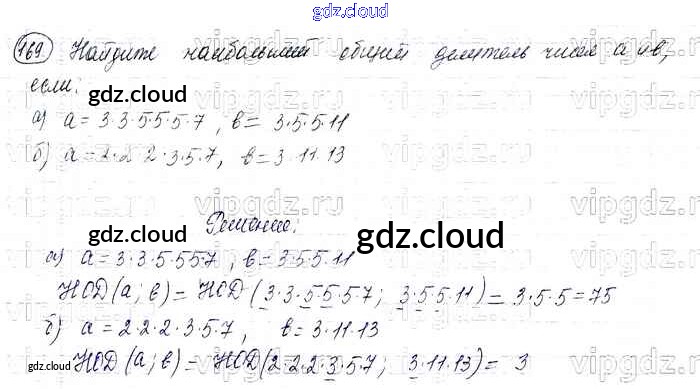 gdz.cloud
169 Найдите наибольший общий делитель чисел a и b,
если:
gdz.cloud
а) a = 3·3·5·5·5·7, b = 3·5·5·11
б) a = 2·2·2·3·5·7, b = 3·11·13
Решение:
gdz.cloud gdz.cloud
а) a = 3·3·5·5·5·7, b = 3·5·5·11
НОД (a; b) = НОД (3·3·5·5·5·7; 3·5·5·11) = 3·5·5 = 75
б) a = 2·2·2·3·5·7, b = 3·11·13
НОД (a; b) = НОД (2·2·2·3·5·7; 3·11·13) = 3
gdz.cloud gdz.cloud
vipgdz.ru